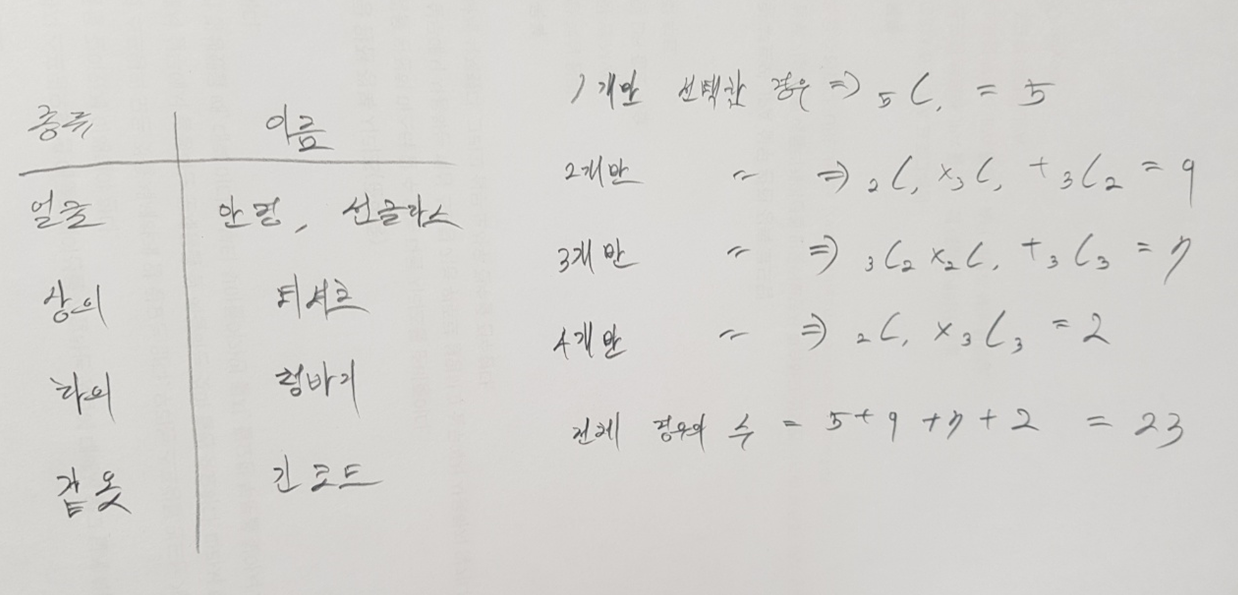 종류 이름
얼굴 안경, 선글라스
상의 티셔츠
하의 청바지
겉옷 긴 코트
1개만 선택한 경우 ⇒ ₅C₁ = 5
2개만 〃 ⇒ ₂C₁ ×₃C₁ + ₃C₂ = 9
3개만 〃 ⇒ ₃C₂ ×₂C₁ + ₃C₃ = 7
4개만 〃 ⇒ ₂C₁ × ₃C₃ = 2
전체 경우의 수 = 5+9+7+2 = 23